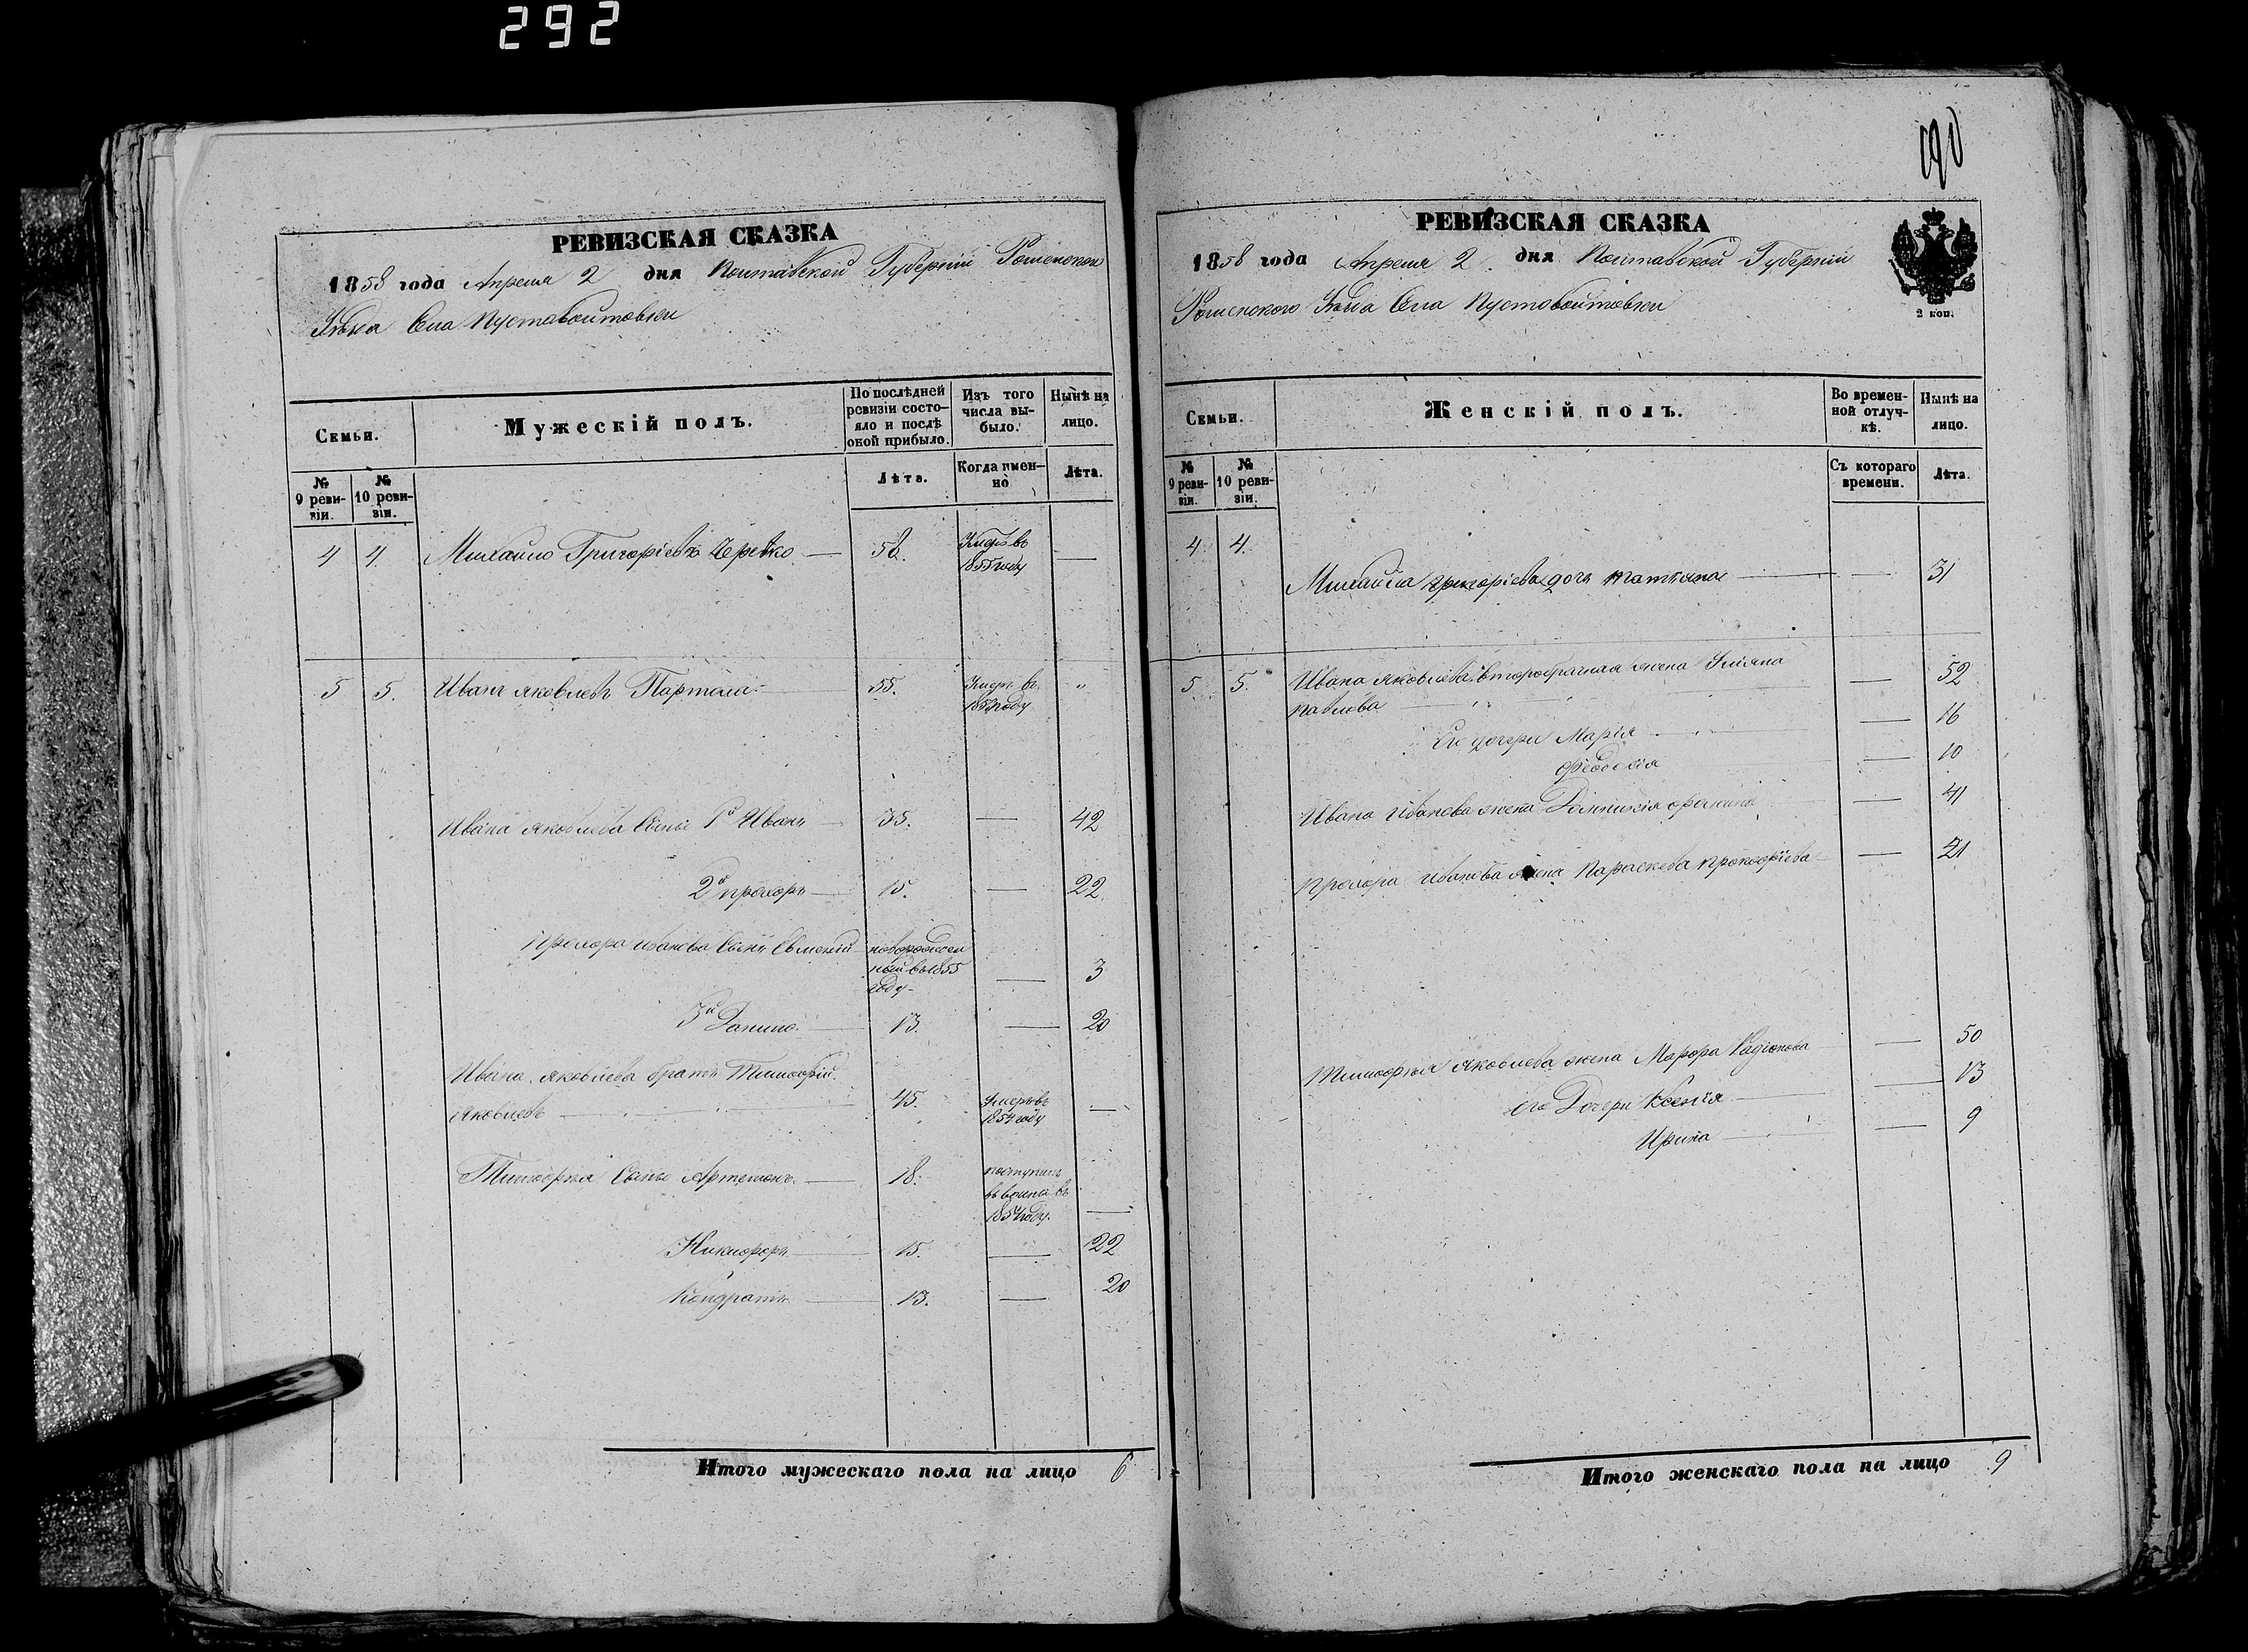 292
РЕВИЗСКАЯ СКАЗКА
1858 года Апреля 2 дня Полтавской Губернiи Роменского
Уѣзда Села Пустовойтовки
Семьи.
Мужескiй полъ.
По послѣдней ревизiи состо-
яло и послѣ
оной прибыло.
Изъ того
числа вы-
было.
Нынѣ на
лицо.
№
9 реви-
зiи.
№
10 реви-
зiи.
Лѣта.
Когда имен-
но
Лѣта.
4 4. Михайло Григорiевъ Черевко — 58. Умеръ въ —
1855 году
5 5. Иванъ яковлевъ Партала 55. Умеръ въ "
году
Ивана яковлева Сыны 1й Иванъ 35. — 42
2й прохоръ — 15. — 22.
Прохора иванова Сынъ новорожден
ный въ 1855 — 3
году
3й Данило — 13. — 20
Ивана яковлева братъ Тимофiй
яковлевъ — 45. Умеръ въ —
1854 году
Тимофея Сыны Артемонъ — 18. поступилъ
въ
1854 году. —
Никифоръ — 15. — 22
Кондратъ — 13. — 20
Итого мужескаго пола на лицо 6
190
РЕВИЗСКАЯ СКАЗКА
1858 года Апреля 2 дня Полтавской Губернiи
Роменского Уѣзда Села Пустовойтовки
2 коп.
Семьи.
Женскiй полъ.
Во времен-
ной отлуч-
кѣ.
Нынѣ на
лицо.
№
9 реви-
зiи.
№
10 реви-
зiи.
Съ котораго
времени.
Лѣта.
4. 4.
Михайла григорiева дочь татьяна — — 31
5 5. Ивана яковлева второбрачная жена Ульяна — 52
павлова
Его дочери Марiя — — 16
Феодосiя — 10
Ивана Иванова жена — 41
прохора иванова жена Параскева прокофiева — 21
Тимофея яковлева жена Марфа Радiонова — 50
его Дочери Ксенiя — — 13
Ирина — — 9
Итого женскаго пола на лицо 9